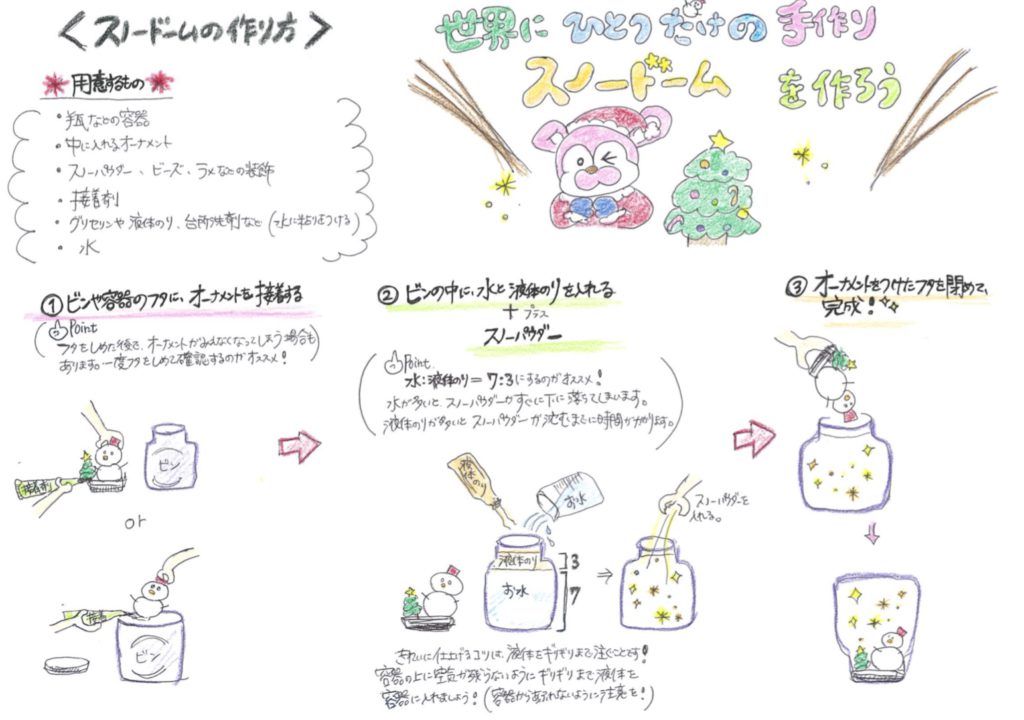 <スノードームの作り方>
世界にひとつだけの手作り
スノードームを作ろう
用意するもの
・瓶などの容器
・中に入れるオーナメント
・スノーパウダー、ビーズ、ラメなどの装飾
・接着剤
・グリセリンや液体のり、台所洗剤など(水に粘りをつける)
・水
①ビンや容器のフタに、オーナメントを接着する
Point
フタをしめた後で、オーナメントがみえなくなってしまう場合も
あります。一度フタをしめて確認するのがオススメ!
接着剤
ビン
or
接着
ビン
②ビンの中に、水と液体のりを入れる
+プラス
スノーパウダー
Point
水:液体のり=7:3にするのがオススメ!
水が多いと、スノーパウダーがすぐに下に落ちてしまいます。
液体のりが多いとスノーパウダーが沈むまでに時間がかかります。
液体のり
お水
液体のり
3
お水
7
スノーパウダーを
入れる。
きれいに仕上げるコツは、液体をギリギリまで注ぐことです!
容器の上に空気が残らないようにギリギリまで液体を
容器に入れましょう!(容器からあふれないように注意を!)
③オーナメントをつけたフタを閉めて、
完成!